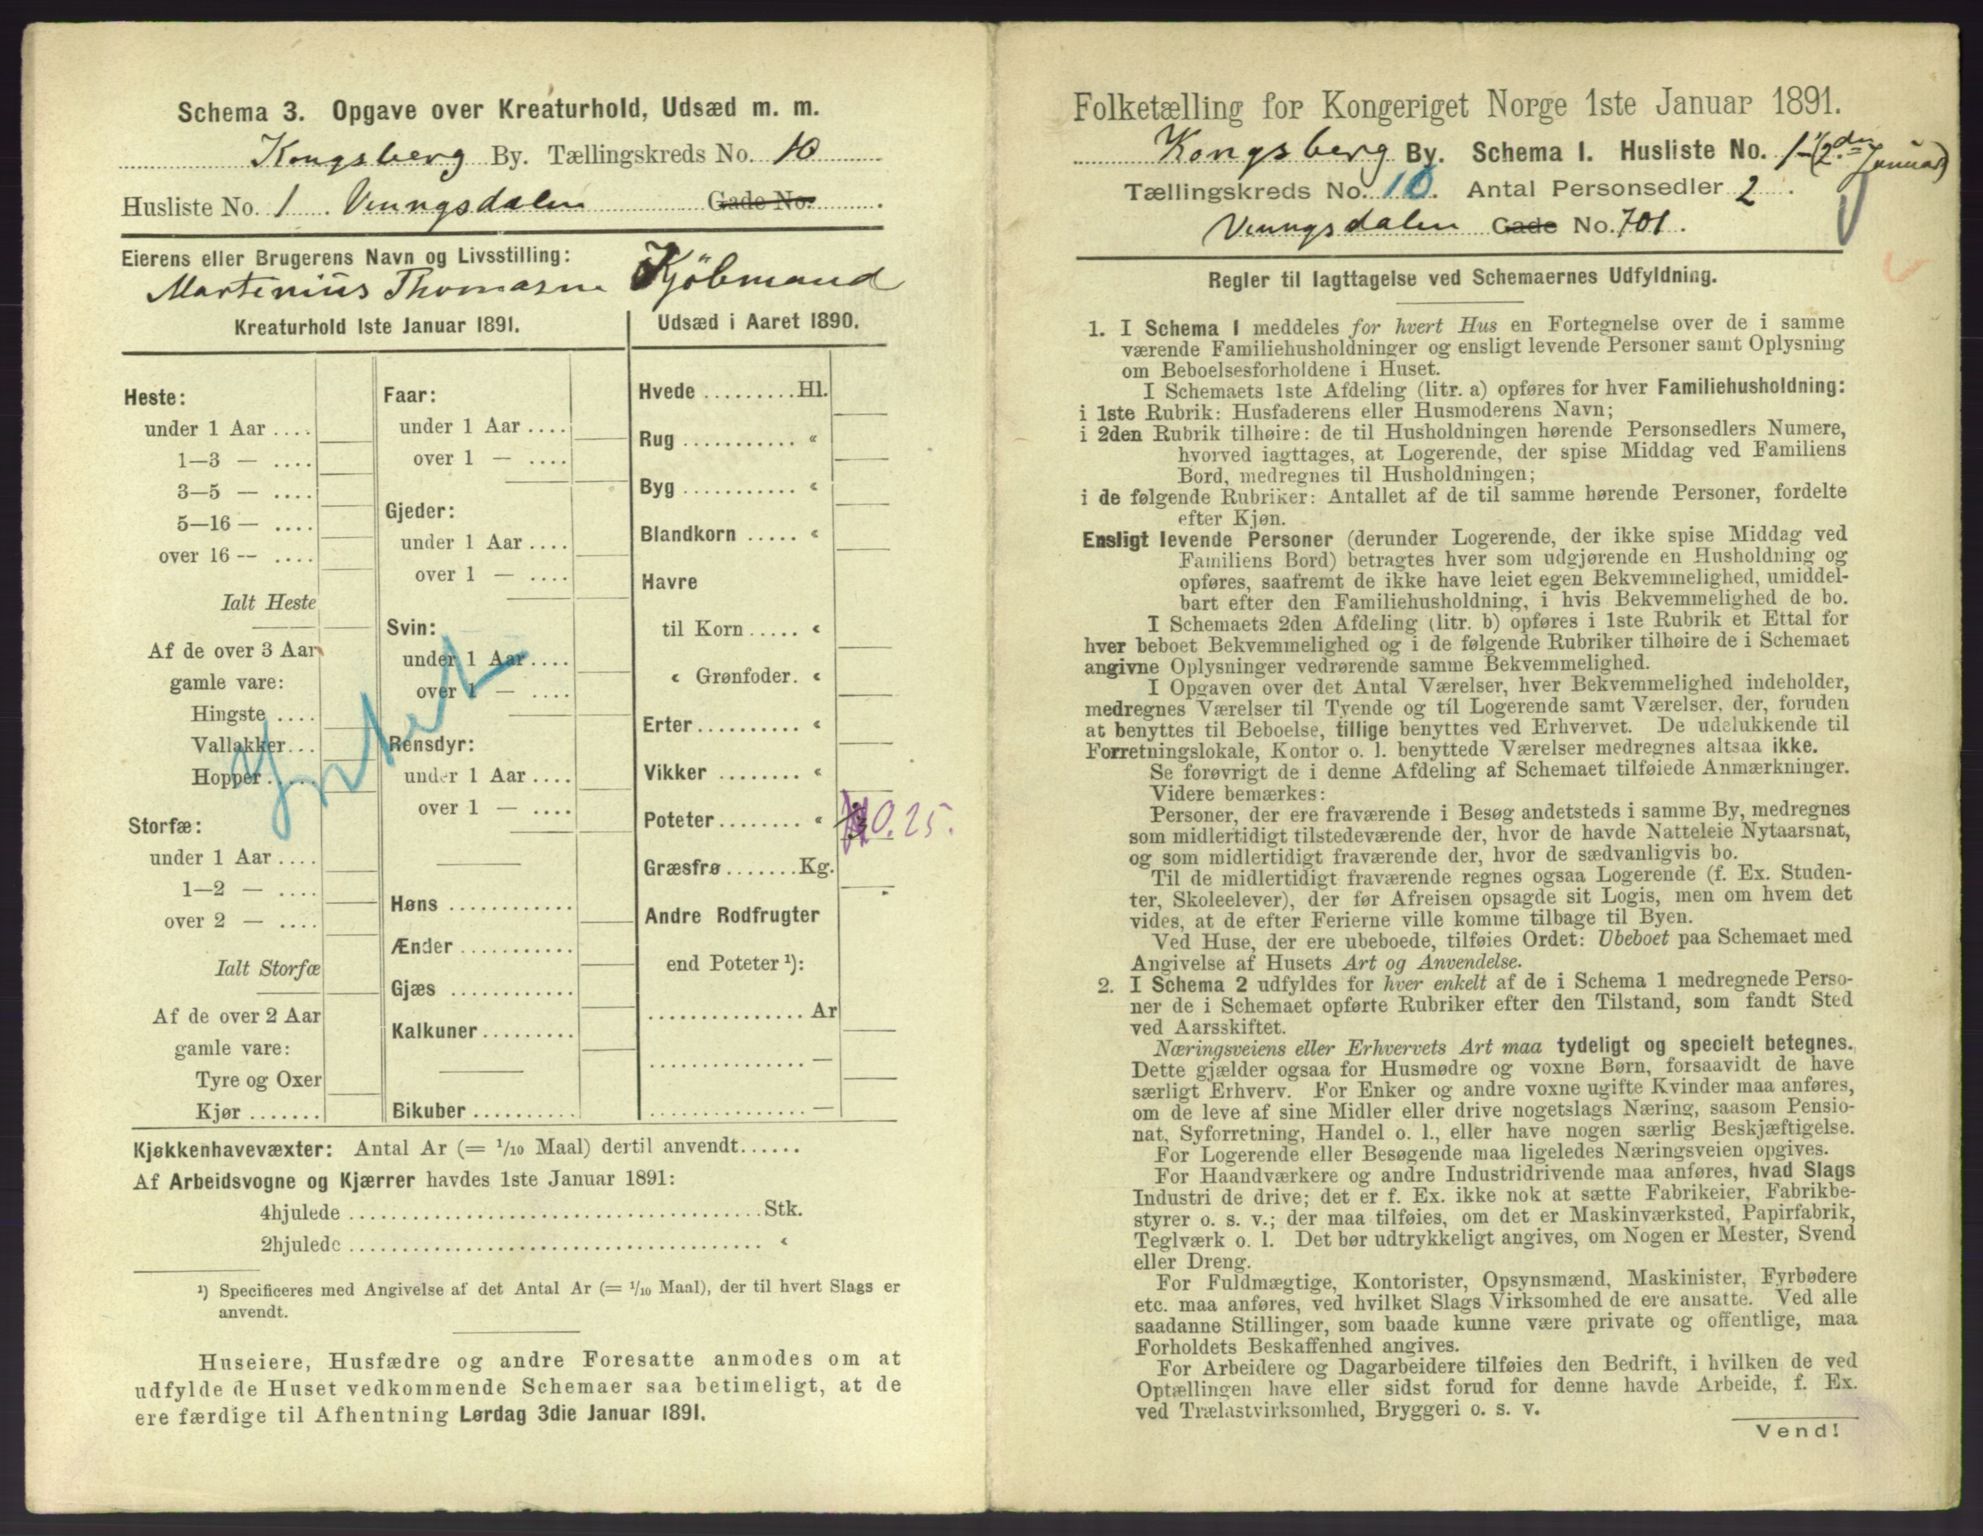 Schema 3. Opgave over Kreaturhold, Udsæd m. m.
Kongsberg By. Tællingskreds No. 10
Husliste No. 1 Vinngsdalen Gade No.
Eierens eller Brugerens Navn og Livsstilling:
Martinius Thomasen Kjöbmand
Kreaturhold 1ste Januar 1891.
Heste:
under 1 Aar ....
1—3 — ....
3—5 — ....
5—16 — ....
over 16 — ....
Ialt Heste
Af de over 3 Aar
gamle vare:
Hingste ....
Vallakker...
Hopper .....
Storfæ:
under 1 Aar ....
1—2 — ....
over 2 — ....
Ialt Storfæ
Af de over 2 Aar
gamle vare:
Tyre og Oxer
Kjør .......
Faar:
under 1 Aar ....
over 1 — ....
Gjeder:
under 1 Aar ....
over 1 — ....
Svin:
under 1 Aar ....
over 1 — ....
Rensdyr:
under 1 Aar ....
over 1 — ....
Høns ............
Ænder ...........
Gjæs ............
Kalkuner.........
Bikuber ..........
Udsæd i Aaret 1890.
Hvede .........Hl.
Rug ........... «
Byg ........... «
Blandkorn ..... «
Havre
til Korn ..... «
« Grønfoder. «
Erter .......... «
Vikker ........ «
Poteter ........ « 0.25.
Græsfrø .......Kg.
Andre Rodfrugter
end Poteter ¹):
............... Ar
............... —
............... —
Kjøkkenhavevæxter: Antal Ar (= 1/10 Maal) dertil anvendt......
Af Arbeidsvogne og Kjærrer havdes 1ste Januar 1891:
4hjulede ........................................Stk.
2hjulede ........................................ «
¹) Specificeres med Angivelse af det Antal Ar (= 1/10 Maal), der til hvert Slags er
anvendt.
Huseiere, Husfædre og andre Foresatte anmodes om at
udfylde de Huset vedkommende Schemaer saa betimeligt, at de
ere færdige til Afhentning Lørdag 3die Januar 1891.
Folketælling for Kongeriget Norge 1ste Januar 1891.
Kongsberg By. Schema I. Husliste No. 1 (2den Januar)
Tællingskreds No. 10. Antal Personsedler 2.
Vinngsdalen Gade No. 701.
Regler til Iagttagelse ved Schemaernes Udfyldning.
1. I Schema 1 meddeles for hvert Hus en Fortegnelse over de i samme
værende Familiehusholdninger og ensligt levende Personer samt Oplysning
om Beboelsesforholdene i Huset.
I Schemaets 1ste Afdeling (litr. a) opføres for hver Familiehusholdning:
i 1ste Rubrik: Husfaderens eller Husmoderens Navn;
i 2den Rubrik tilhøire: de til Husholdningen hørende Personsedlers Numere,
hvorved iagttages, at Logerende, der spise Middag ved Familiens
Bord, medregnes til Husholdningen;
i de følgende Rubriker: Antallet af de til samme hørende Personer, fordelte
efter Kjøn.
Ensligt levende Personer (derunder Logerende, der ikke spise Middag ved
Familiens Bord) betragtes hver som udgjørende en Husholdning og
opføres, saafremt de ikke have leiet egen Bekvemmelighed, umiddel-
bart efter den Familiehusholdning, i hvis Bekvemmelighed de bo.
I Schemaets 2den Afdeling (litr. b) opføres i 1ste Rubrik et Ettal for
hver beboet Bekvemmelighed og i de følgende Rubriker tilhøire de i Schemaet
angivne Oplysninger vedrørende samme Bekvemmelighed.
I Opgaven over det Antal Værelser, hver Bekvemmelighed indeholder,
medregnes Værelser til Tyende og til Logerende samt Værelser, der, foruden
at benyttes til Beboelse, tillige benyttes ved Erhvervet. De udelukkende til
Forretningslokale, Kontor o. l. benyttede Værelser medregnes altsaa ikke.
Se forøvrigt de i denne Afdeling af Schemaet tilføiede Anmærkninger.
Videre bemærkes:
Personer, der ere fraværende i Besøg andetsteds i samme By, medregnes
som midlertidigt tilstedeværende der, hvor de havde Natteleie Nytaarsnat,
og som midlertidigt fraværende der, hvor de sædvanligvis bo.
Til de midlertidigt fraværende regnes ogsaa Logerende (f. Ex. Studen-
ter, Skoleelever), der før Afreisen opsagde sit Logis, men om hvem det
vides, at de efter Ferierne ville komme tilbage til Byen.
Ved Huse, der ere ubeboede, tilføies Ordet: Ubeboet paa Schemaet med
Angivelse af Husets Art og Anvendelse.
2. I Schema 2 udfyldes for hver enkelt af de i Schema 1 medregnede Perso-
ner de i Schemaet opførte Rubriker efter den Tilstand, som fandt Sted
ved Aarsskiftet.
Næringsveiens eller Erhvervets Art maa tydeligt og specielt betegnes.
Dette gjælder ogsaa for Husmødre og voxne Børn, forsaavidt de have
særligt Erhverv. For Enker og andre voxne ugifte Kvinder maa anføres,
om de leve af sine Midler eller drive nogetslags Næring, saasom Pensio-
nat, Syforretning, Handel o. l., eller have nogen særlig Beskjæftigelse.
For Logerende eller Besøgende maa ligeledes Næringsveien opgives.
For Haandværkere og andre Industridrivende maa anføres, hvad Slags
Industri de drive; det er f. Ex. ikke nok at sætte Fabrikeier, Fabrikbe-
styrer o. s. v.; der maa tilføies, om det er Maskinværksted, Papirfabrik,
Teglværk o. l. Det bør udtrykkeligt angives, om Nogen er Mester, Svend
eller Dreng.
For Fuldmægtige, Kontorister, Opsynsmænd, Maskinister, Fyrbødere
etc. maa anføres, ved hvilket Slags Virksomhed de ere ansatte. Ved alle
saadanne Stillinger, som baade kunne være private og offentlige, maa
Forholdets Beskaffenhed angives.
For Arbeidere og Dagarbeidere tilføies den Bedrift, i hvilken de ved
Optællingen have eller sidst forud for denne havde Arbeide, f. Ex.
ved Trælastvirksomhed, Bryggeri o. s. v.
Vend!